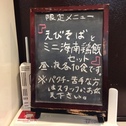 限定メニュー
『えびそばと
ミニ海南鶏飯
セット』
昼・夜各10食です。
※パクチー苦手な方
はスタッフにお伝
え下さい。